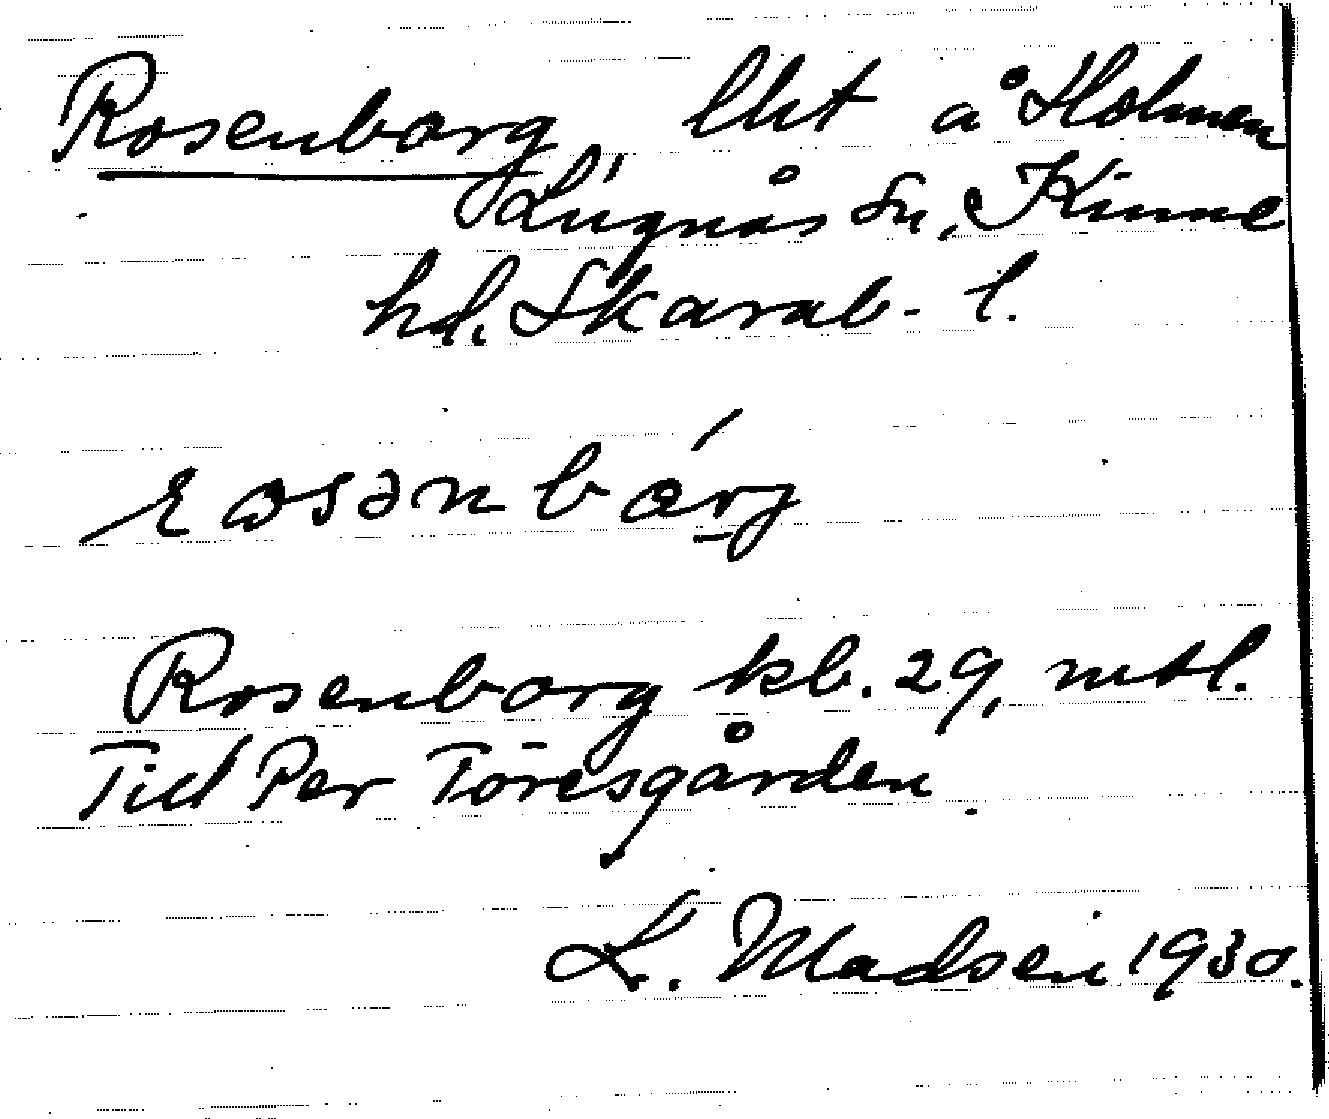 Rosenborg, lht å Holmen
Lugnås sn, Kinne
hd. Skarab. l.
rosənbórj
Rosenborg kb. 29, mtl.
Till Per Töresgården.
L. Madsen 1930.